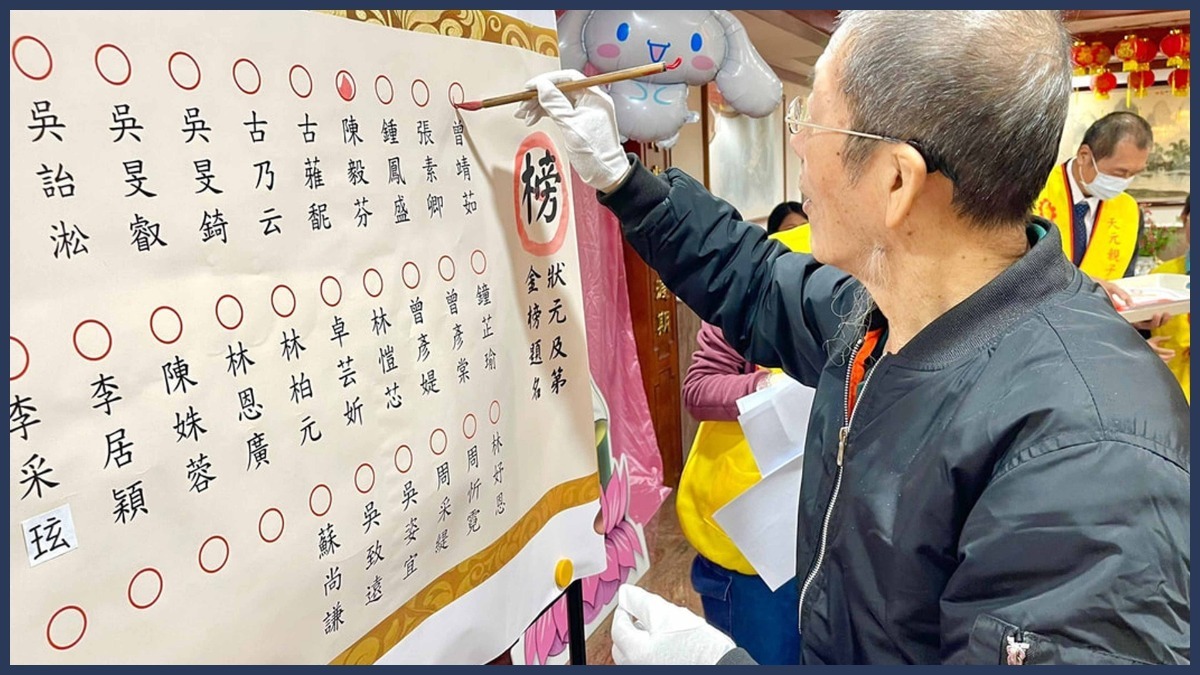 榜
狀元及第
金榜題名
曾靖茹
張素卿
鍾鳳盛
陳毅芬
古蕥
古乃云
吳旻錡
吳旻叡
吳詒淞
鐘芷瑜
曾彥棠
曾彥媞
林愷芯
卓芸妡
林柏元
林恩廣
陳姝蓉
李居穎
李采玹
林妤恩
周忻霓
周采緹
吳姿宜
吳致遠
蘇尚謙
天元親子